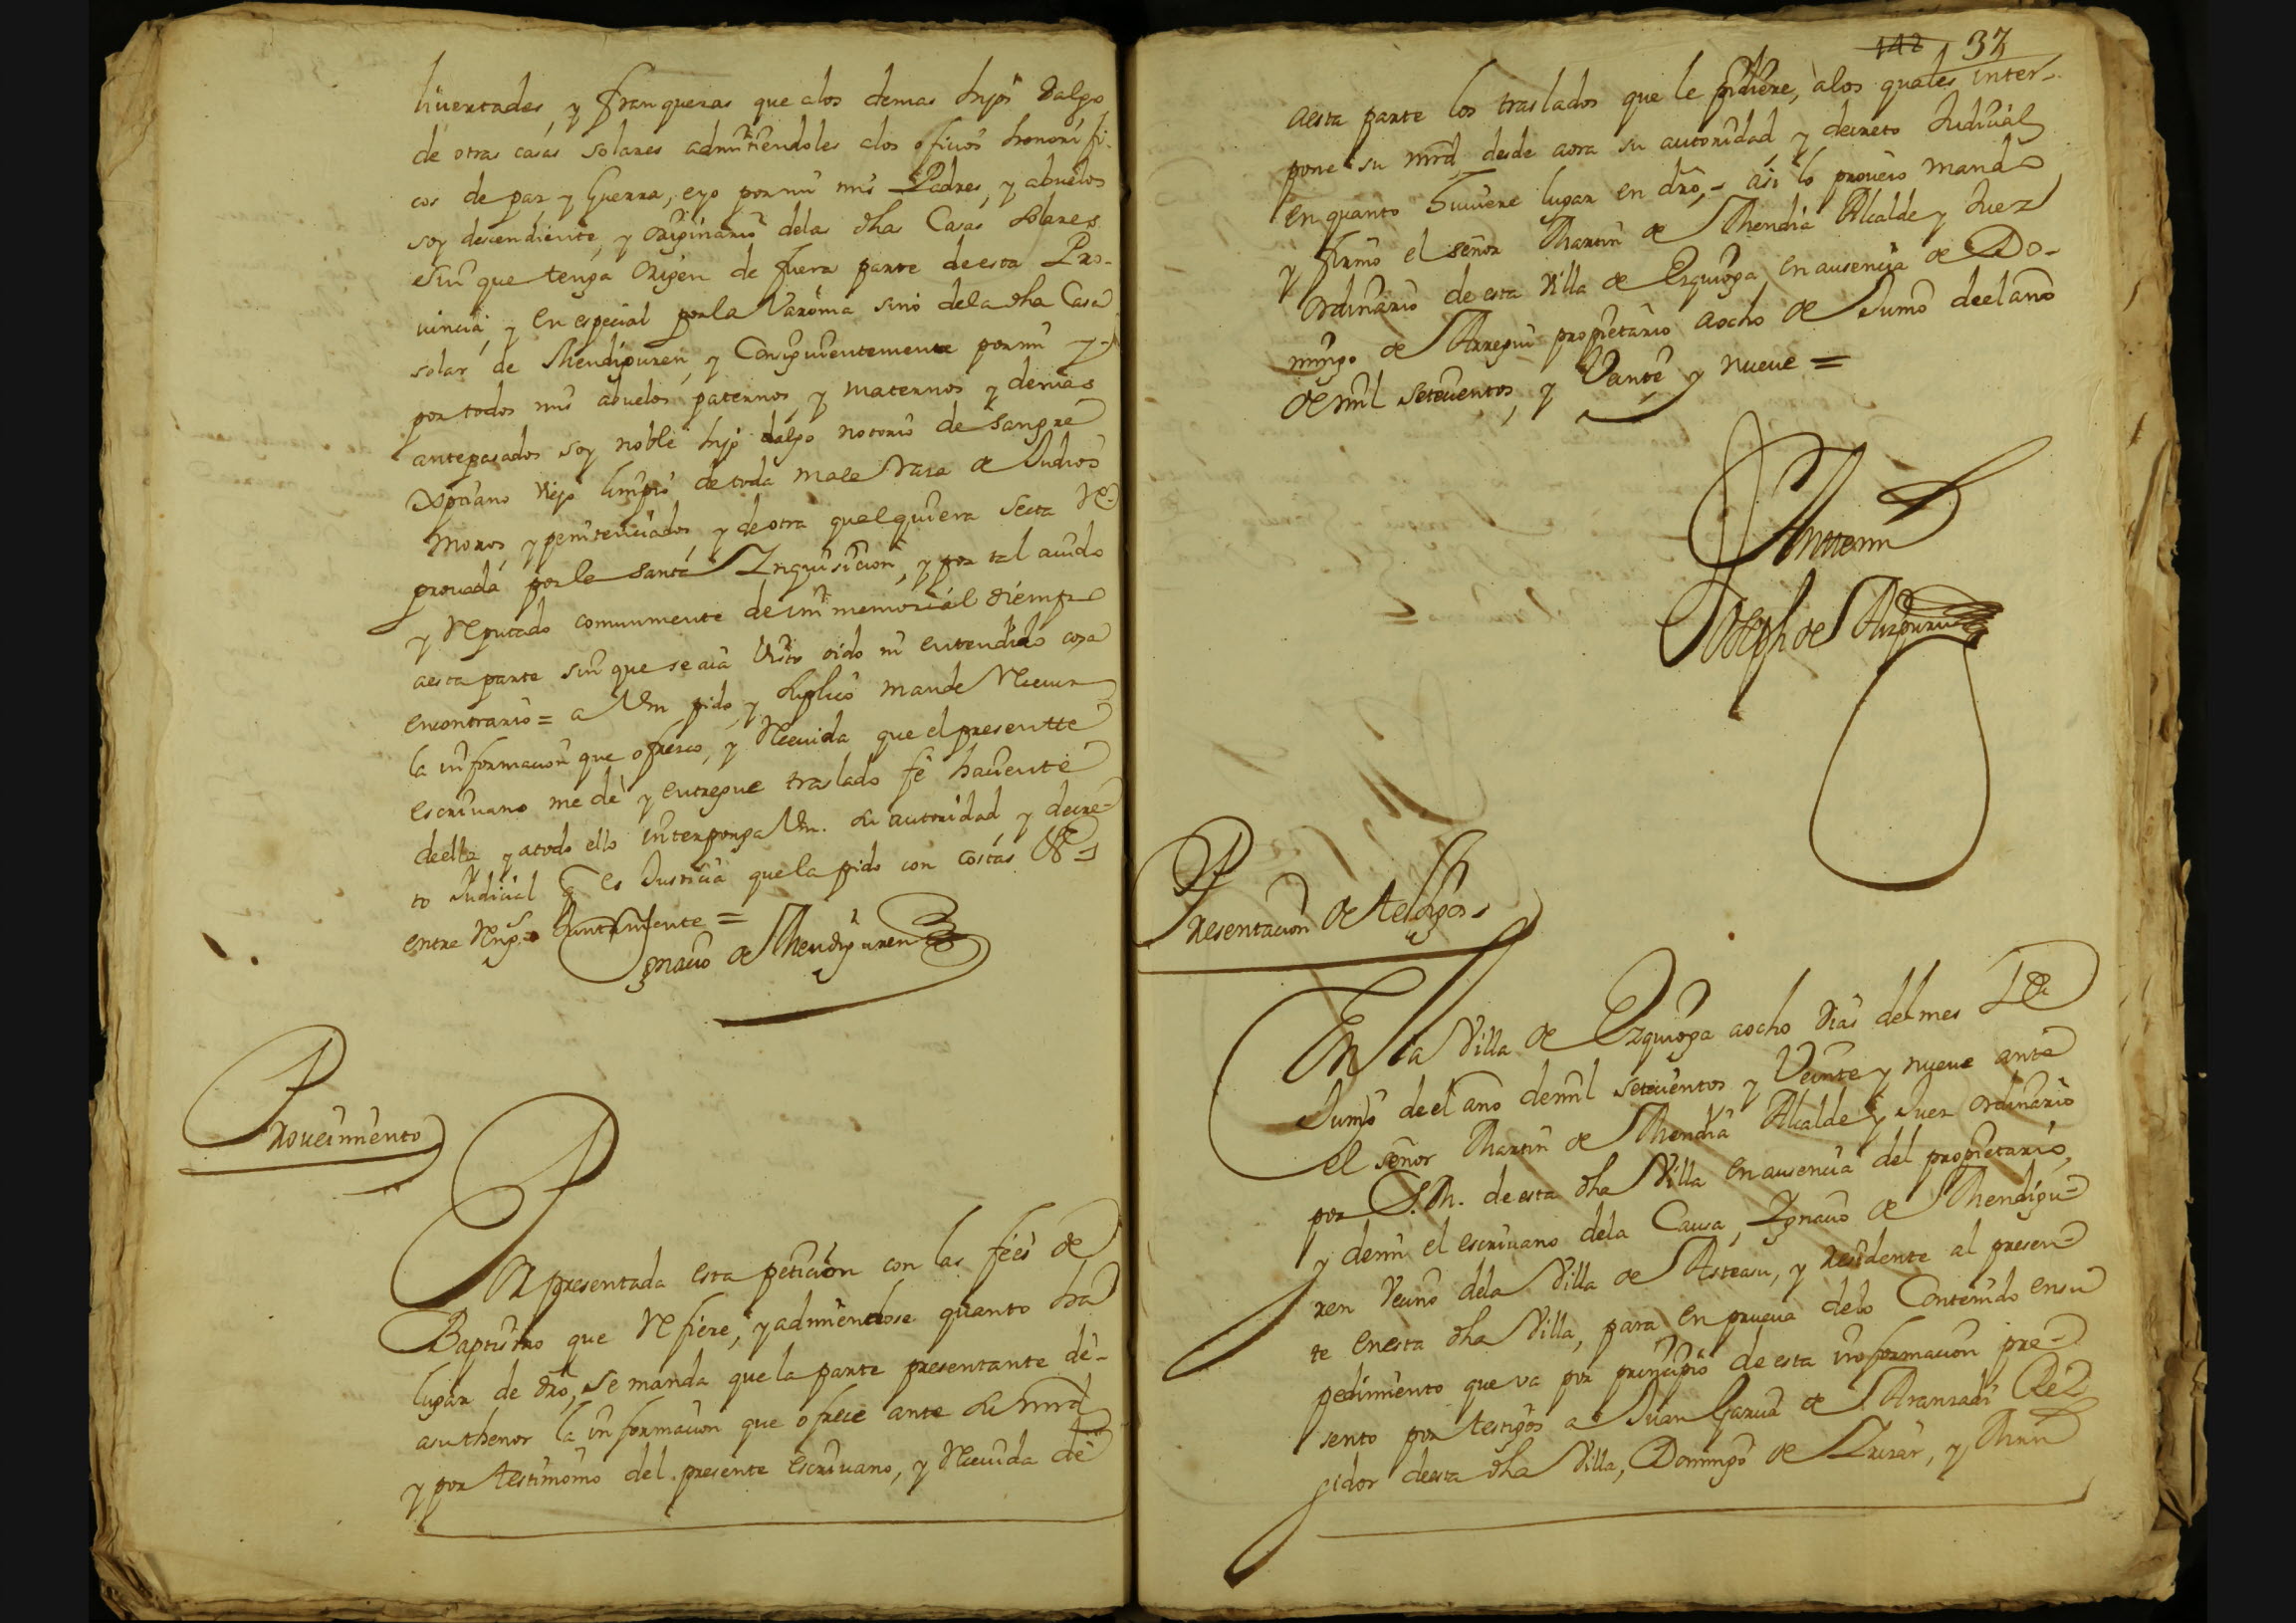 livertades, y franquezas que alos demas hijos dalgo
de otras casas solares admitiendoles alos oficios honorifi-
cos de paz y Guerra, eyo por mi mis Padres, y abuelos
soy descendiente, y originario delas dhas Casas solares
esin que tenga Origen de fuera parte deesta Pro-
vincia, y en especial por la Varonia sino dela dha Casa
solar de Mendiguren, y Consiguientemente por mi y
por todos mis abuelos paternos y maternos y demas
antepasados soy noble hijo dalgo notorio de Sangre
Xptiano viejo limpio de toda mala raza de Judios
Moros, y penitenciados y de otra qualquiera Secta Re-
provada por la Santa Inquisicion, y por tal avido
y Reputado comunmente de immemorial tiempo
aesta parte sin que se aia visto oido ni entendido cosa
encontrario = a Vm pido, y suplico mande Recivir
la informacion que ofresco, y Recivida que el presentte
escrivano me de y entregue traslado fe haciente
deella y atodo ello interponga Vm. su autoridad y decre-
to Judicial q es Justicia que la pido con costas &ª
entre Rengs Juntamente =
Ignacio de Mendiguren
Proveimiento
Por presentada esta peticion con las feés de
Baptismo que Refiere, y admitiendose quanto ha
lugar de dro, se manda que la parte presentante dé
asuthenor la informacion que ofrece ante su mrd
y por testimonio del presente escrivano, y Recivida dé
142 37
aesta parte los traslados que le pidiere, alos quales inter-
pone su mrd desde aora su autoridad y decreto Judicial
en quanto huviere lugar en dro, asi lo proveio mandó
y firmó el señor Martin de Mendia Alcalde y Juez
Ordinario de esta villa de Ezquioga en ausencia de Do-
mingo de Arregui propietario aocho de Junio deel año
de mil setecientos, y Veinte y nueve =
Ante mi
Joseph de Aizpuru
Presentacion de testigos
En la Villa de Ezquioga aocho dias del mes de
Junio de el año demil setecientos y Veinte y nueve ante
el señor Martin de Mendia Alcalde y Juez Ordinario
por S.M. de esta dha Villa en ausencia del propietario,
y demi el escrivano dela Causa, Ignacio de Mendigu-
ren Vecino dela Villa de Asteasu, y residente al presen-
te enesta dha Villa, para en prueva delo Contenido ensu
pedimiento que va por principio de esta informacion pre-
sento por testigos a Juan Garcia de Aranzadi Re-
gidor deesta dha Villa, Domingo de Irizar, y Mrn